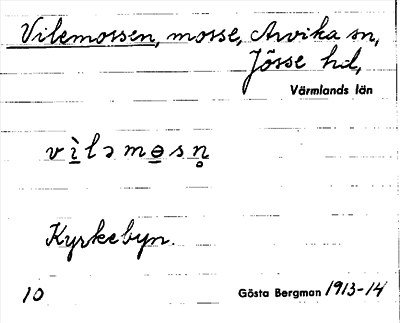 Vilemossen, mosse, Arvika sn,
Jösse hd,
Värmlands län
vì̲ləmɵ̲sn̥
Kyrkebyn.
10
Gösta Bergman 1913-14